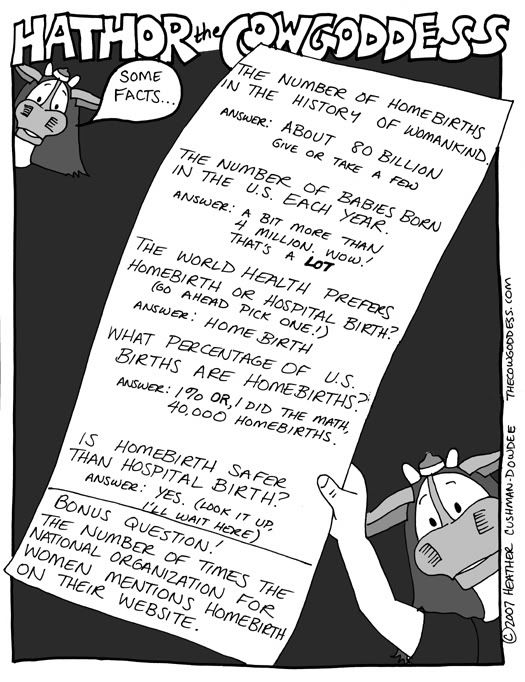 HATHOR the COWGODDESS
SOME
FACTS...
THE NUMBER OF HOMEBIRTHS
IN THE HISTORY OF WOMANKIND.
ANSWER: ABOUT 80 BILLION
GIVE OR TAKE A FEW
THE NUMBER OF BABIES BORN
IN THE U.S. EACH YEAR.
ANSWER: A BIT MORE THAN
4 MILLION. WOW!
THAT'S A LOT
THE WORLD HEALTH PREFERS
HOMEBIRTH OR HOSPITAL BIRTH?
(GO AHEAD PICK ONE!)
ANSWER: HOME BIRTH
WHAT PERCENTAGE OF U.S.
BIRTHS ARE HOMEBIRTHS?
ANSWER: 1% OR, I DID THE MATH,
40,000 HOMEBIRTHS.
IS HOMEBIRTH SAFER
THAN HOSPITAL BIRTH?
ANSWER: YES. (LOOK IT UP,
I'LL WAIT HERE)
BONUS QUESTION!
THE NUMBER OF TIMES THE
NATIONAL ORGANIZATION FOR
WOMEN MENTIONS HOMEBIRTH
ON THEIR WEBSITE.
©2007 HEATHER CUSHMAN-DOWDEE THECOWGODDESS.COM